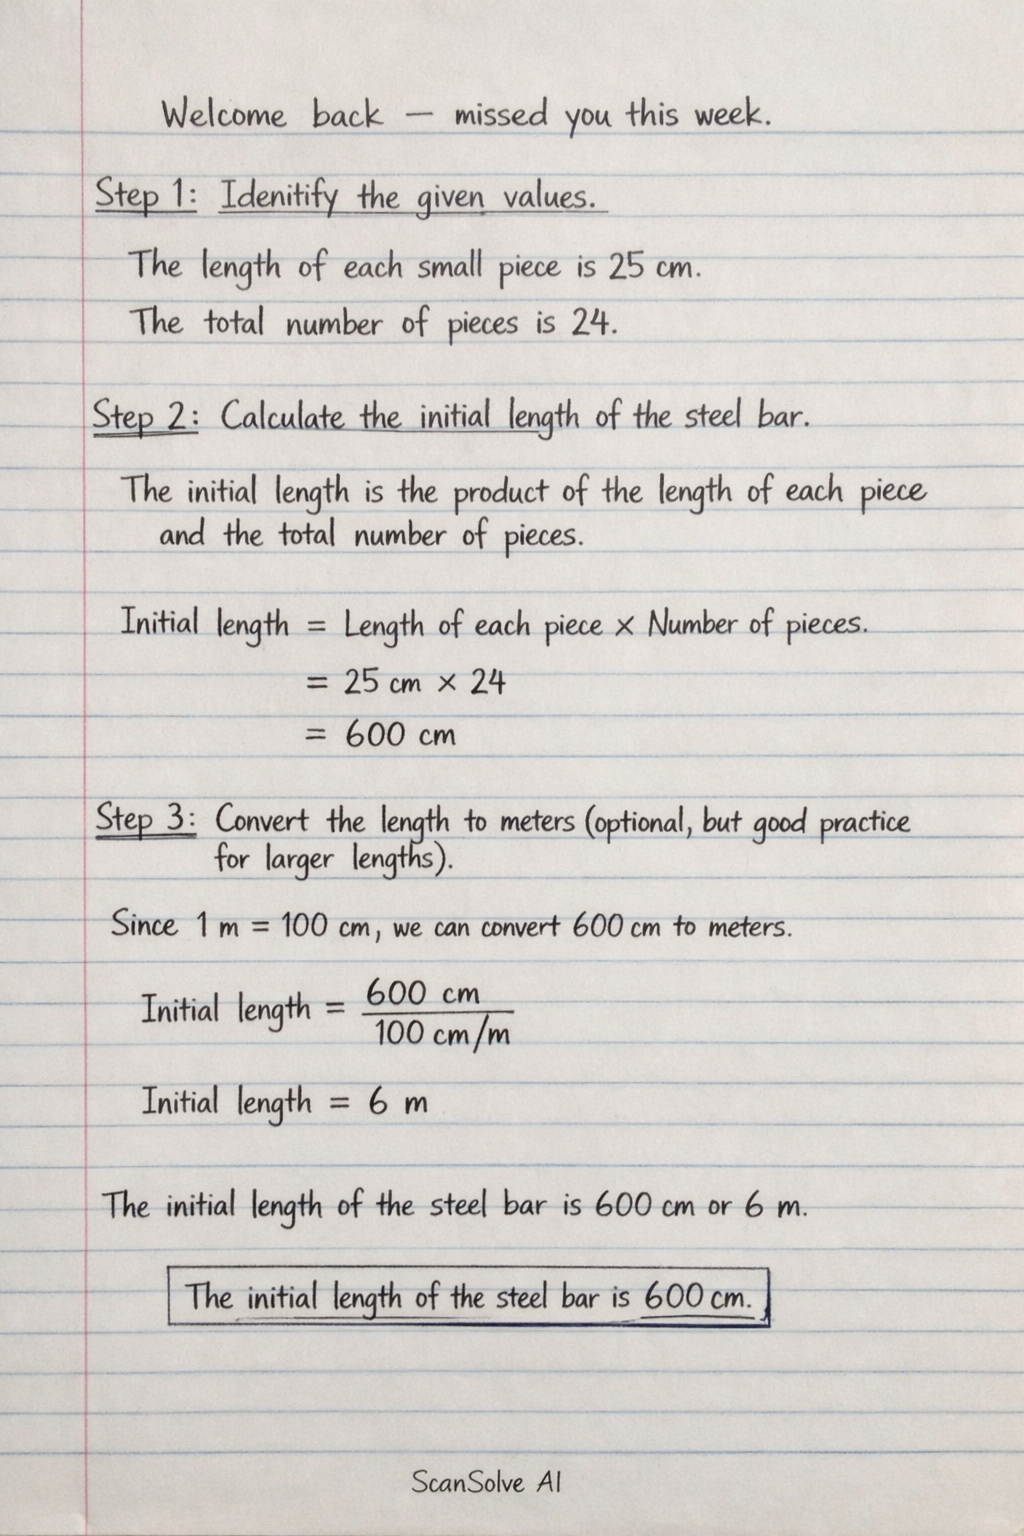 Welcome back — missed you this week.
Step 1: Idenitify the given values.
The length of each small piece is 25 cm.
The total number of pieces is 24.
Step 2: Calculate the initial length of the steel bar.
The initial length is the product of the length of each piece
and the total number of pieces.
Initial length = Length of each piece × Number of pieces.
= 25 cm × 24
= 600 cm
Step 3: Convert the length to meters (optional, but good practice
for larger lengths).
Since 1 m = 100 cm, we can convert 600 cm to meters.
Initial length = 600 cm / 100 cm/m
Initial length = 6 m
The initial length of the steel bar is 600 cm or 6 m.
The initial length of the steel bar is 600 cm.
ScanSolve AI